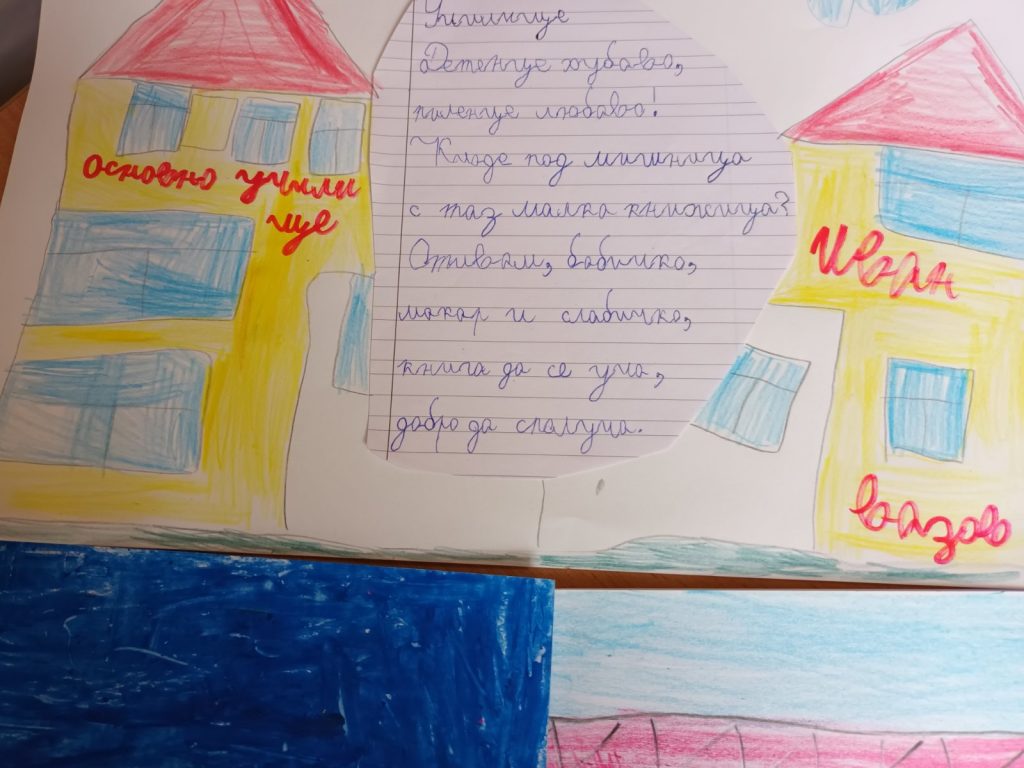 Училище
Детенце хубаво,
пиленце любаво!
Къде под мишница
с таз малка книжица?
Отивам, бабичко,
макар и слабичко,
книга да се уча,
добро да сполуча.
основно учили
ще
Иван
вазов